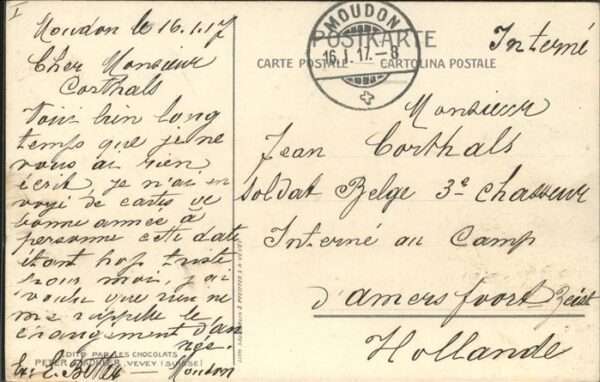 I
Moudon le 16.1.17
Cher Monsieur
Corthals
Voici bien long
temps que je ne
vous ai rien
écrit, je n'ai en
voyé de cartes de
bonne année à
personne cette date
étant trop triste
pour moi, j'ai
voulu que rien ne
me rappelle le
changement d'an
née.
EDITÉ PAR LES CHOCOLATS
PETER, KOHLER, VEVEY (SUISSE)
Moudon
MOUDON
16.I.17.-8
POSTKARTE
CARTE POSTALE — CARTOLINA POSTALE
Interné
Monsieur
Jean Corthals
Soldat Belge 3e Chasseur
Interné au Camp
d'Amersfoort Zeist
Hollande